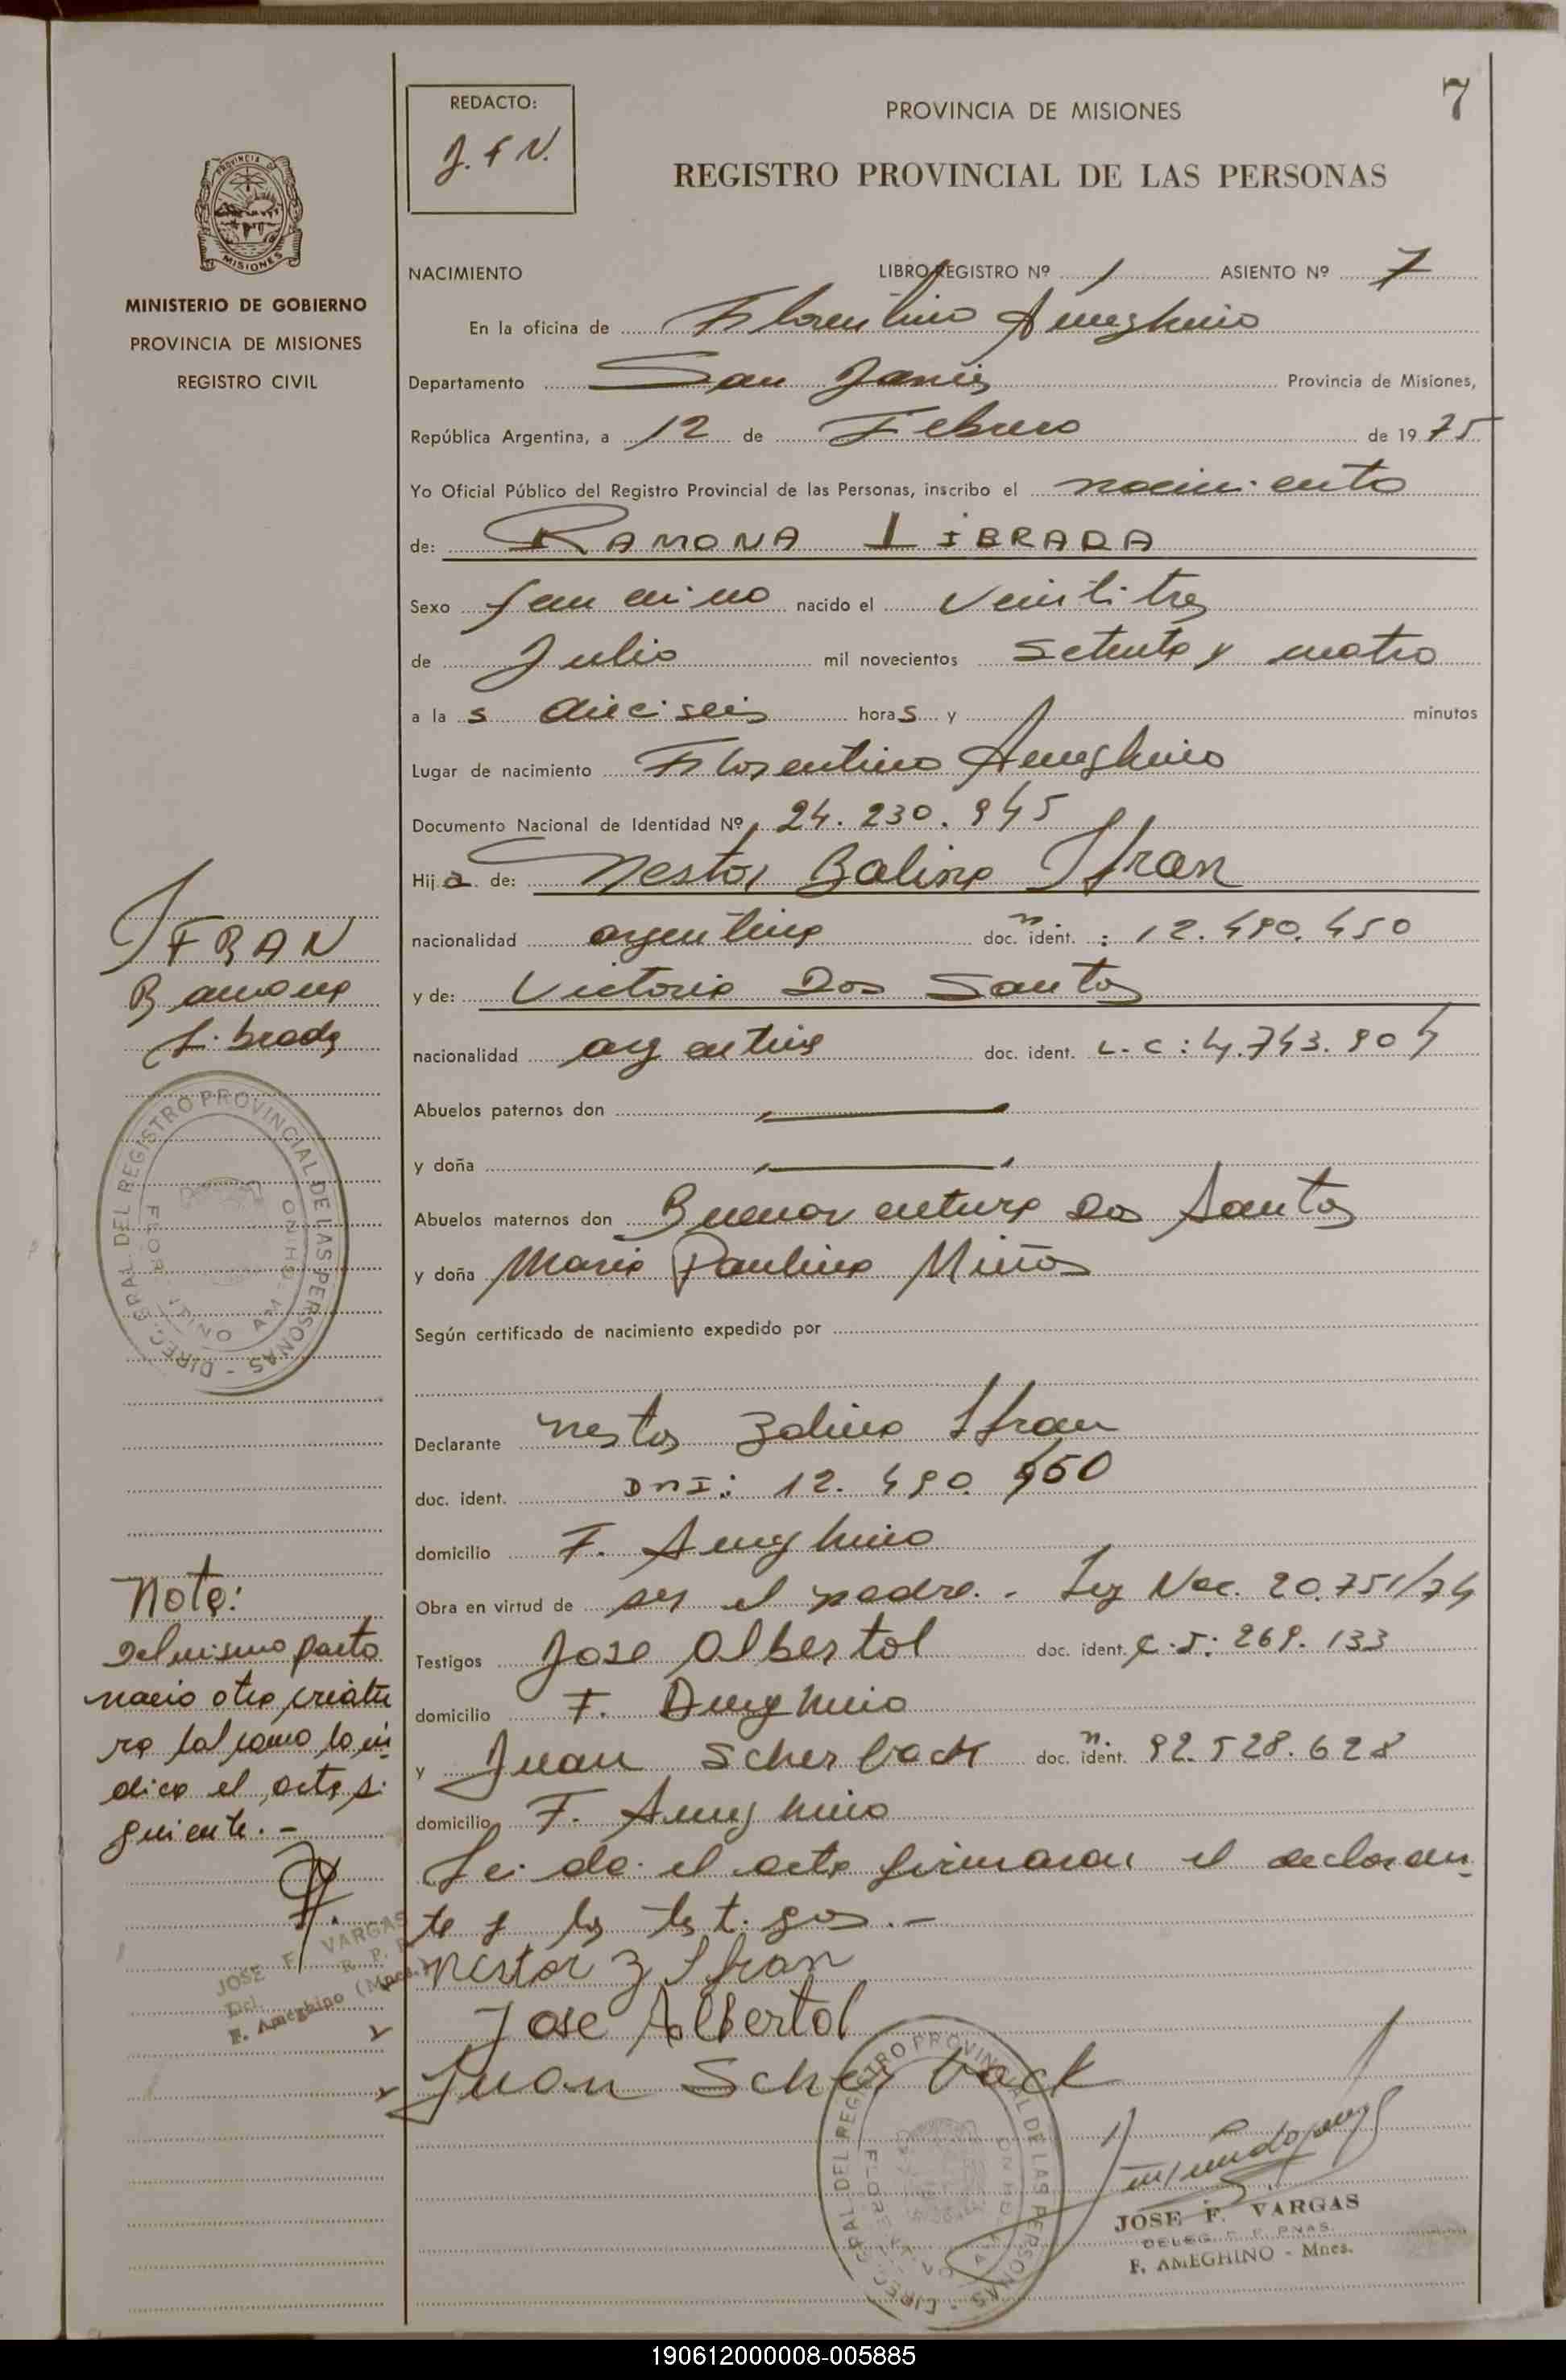 REDACTO:
J. F V.
PROVINCIA DE MISIONES
7
REGISTRO PROVINCIAL DE LAS PERSONAS
PROVINCIA DE MISIONES
MINISTERIO DE GOBIERNO
PROVINCIA DE MISIONES
REGISTRO CIVIL
NACIMIENTO LIBRO REGISTRO Nº 1 ASIENTO Nº 7
En la oficina de Florentino Ameghino
Departamento San Javier Provincia de Misiones,
República Argentina, a 12 de Febrero de 1975
Yo Oficial Público del Registro Provincial de las Personas, inscribo el nacimiento
de: RAMONA LIBRADA
Sexo femenino nacido el veintitres
de Julio mil novecientos setenta y cuatro
a la s dieciseis horas y minutos
Lugar de nacimiento Florentino Ameghino
Documento Nacional de Identidad Nº 24.230.945
Hija de: Nestor Balino Ifran
nacionalidad argentina doc. ident. : 12.490.450
y de: Victoria Dos Santos
nacionalidad argentina doc. ident. L.C: 4.743.904
Abuelos paternos don
y doña
Abuelos maternos don Buenaventura Dos Santos
y doña Maria Paulina Miños
Según certificado de nacimiento expedido por
Declarante Nestor Zalino Ifran
doc. ident. DNI: 12.490.450
domicilio F. Ameghino
Obra en virtud de ser el padre. - Ley Nac. 20.751/74
Testigos Jose Albertol doc. ident. C.I: 269.133
domicilio F. Ameghino
y Juan Scherback doc. ident. 92.528.628
domicilio F. Ameghino
Leida el acta firmaron el declaran
te y los testigos.-
Nestor Z Ifran
Jose Albertol
Juan Scherback
JOSE F. VARGAS
DELEG. R. P. PNAS.
F. AMEGHINO - Mnes.
DIREC. GRAL. DEL REGISTRO PROVINCIAL DE LAS PERSONAS
IFRAN
Ramona
Librada
DIREC. GRAL. DEL REGISTRO PROVINCIAL DE LAS PERSONAS
FLORENTINO AMEGHINO
Nota:
Del mismo parto
nacio otra criatu
ra tal como lo in
dica el acta si
guiente.-
JOSE F. VARGAS
Del. R. P. P.
F. Ameghino (Mnes.)
190612000008-005885